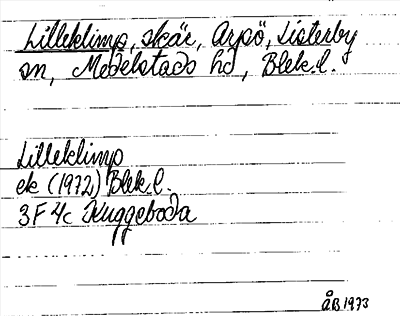 Lilleklimp, skär, Arpö, Listerby
sn, Medelstads hd, Blek.l.
Lilleklimp
ek (1972) Blek.l.
3F 4c Kuggeboda
ÅB 1973